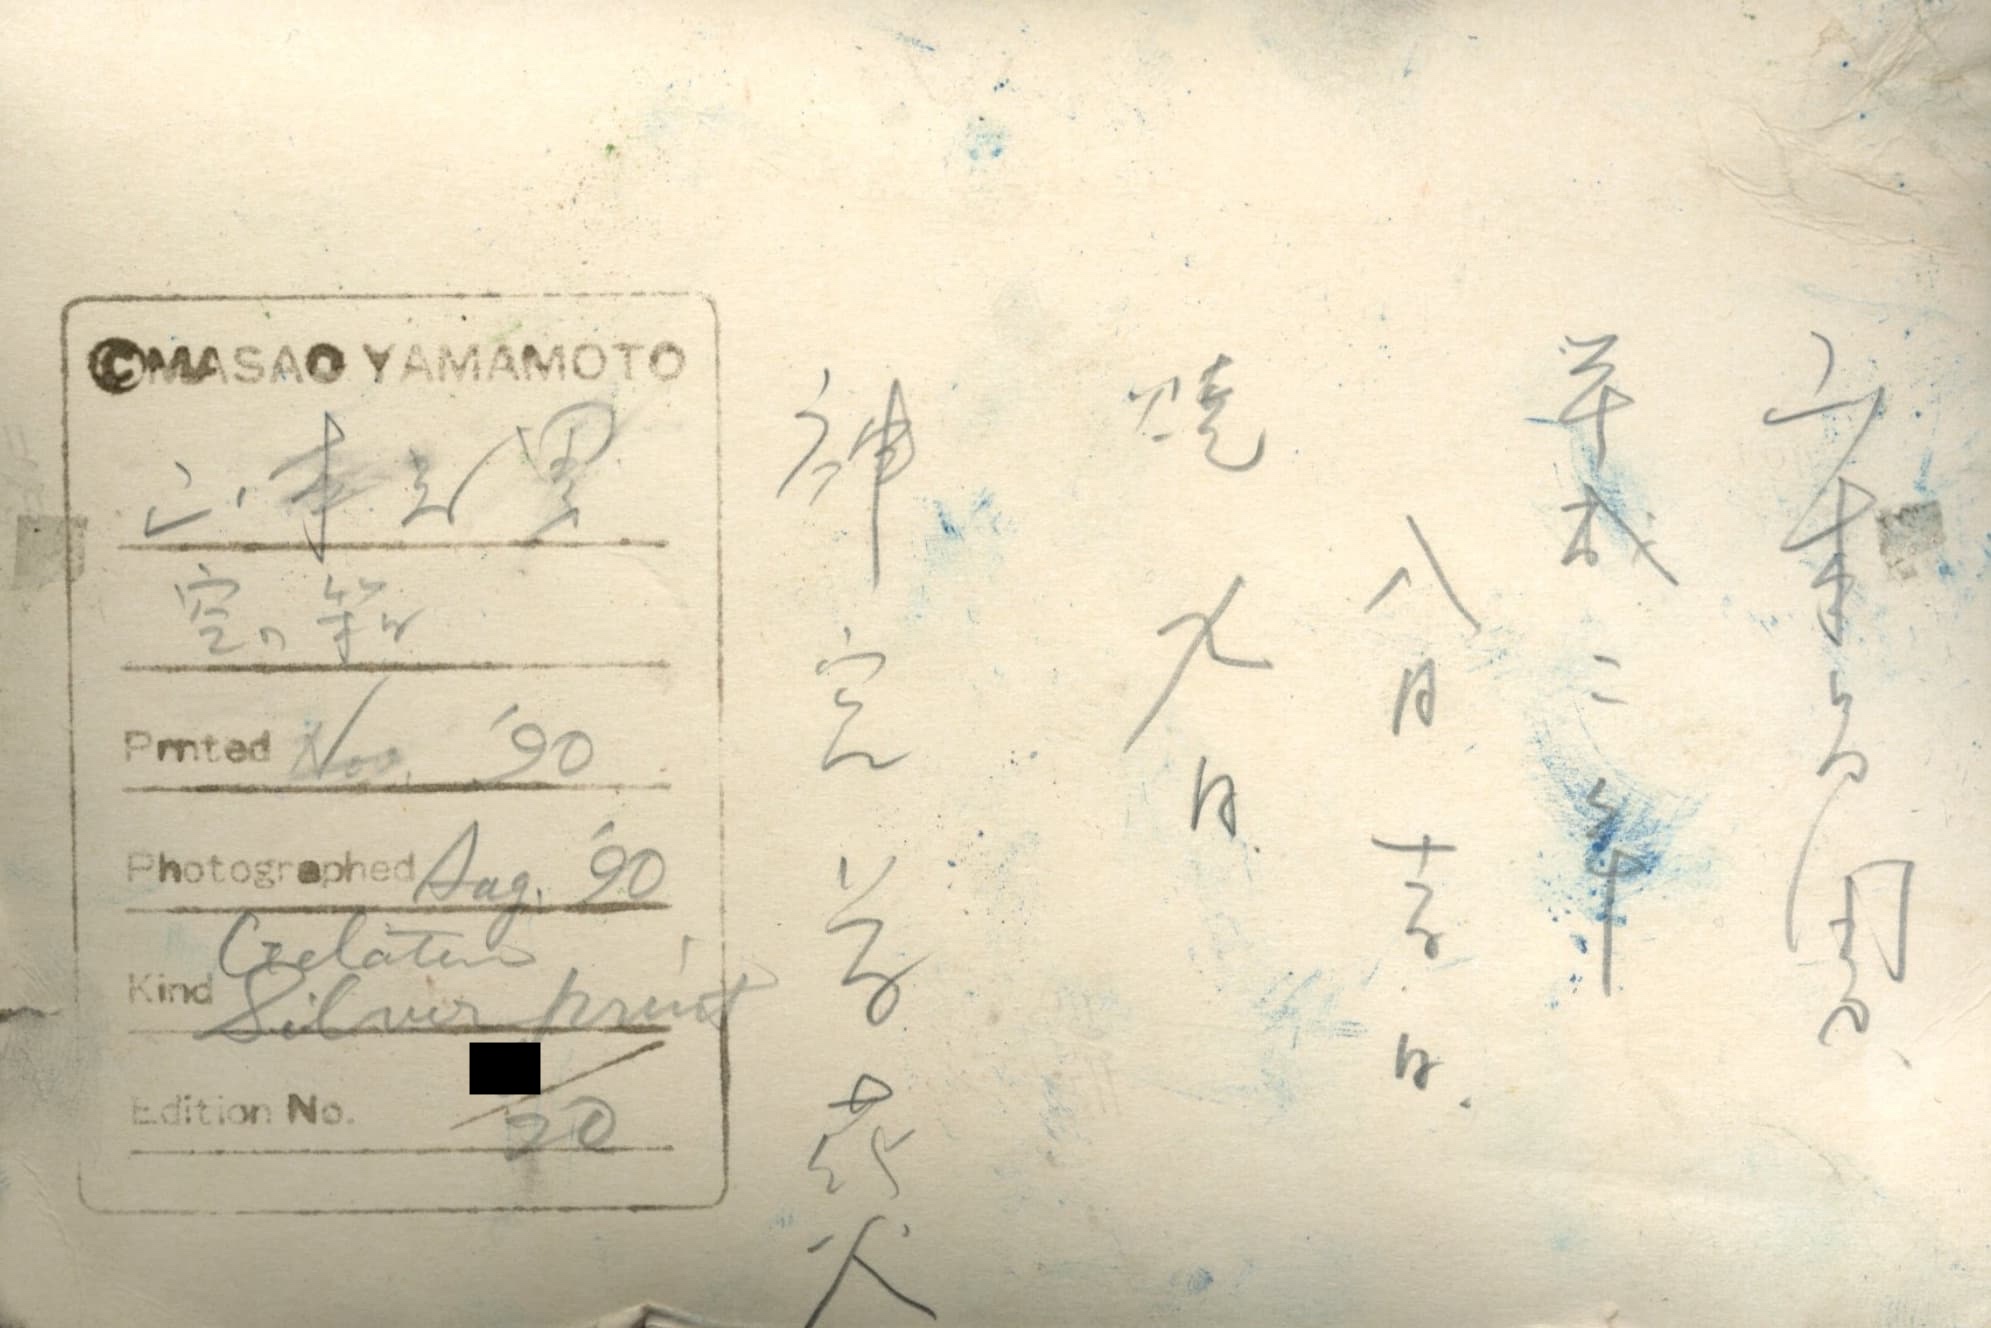 ©MASAO YAMAMOTO
山本昌男
空の箱
Printed Nov. '90
Photographed Aug. '90
Kind Gelatin Silver print
Edition No. /20
山本昌男
平成二年
八月吉日
焼 九月
神宮 花火